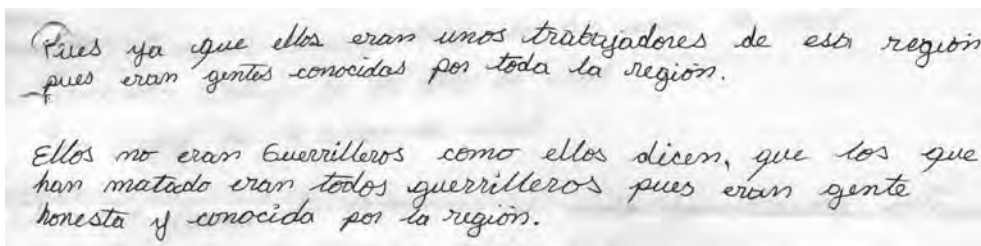 Pues ya que ellos eran unos trabajadores de esa región
pues eran gentes conocidas por toda la región.
Ellos no eran Guerrilleros como ellos dicen, que los que
han matado eran todos guerrilleros pues eran gente
honesta y conocida por la región.